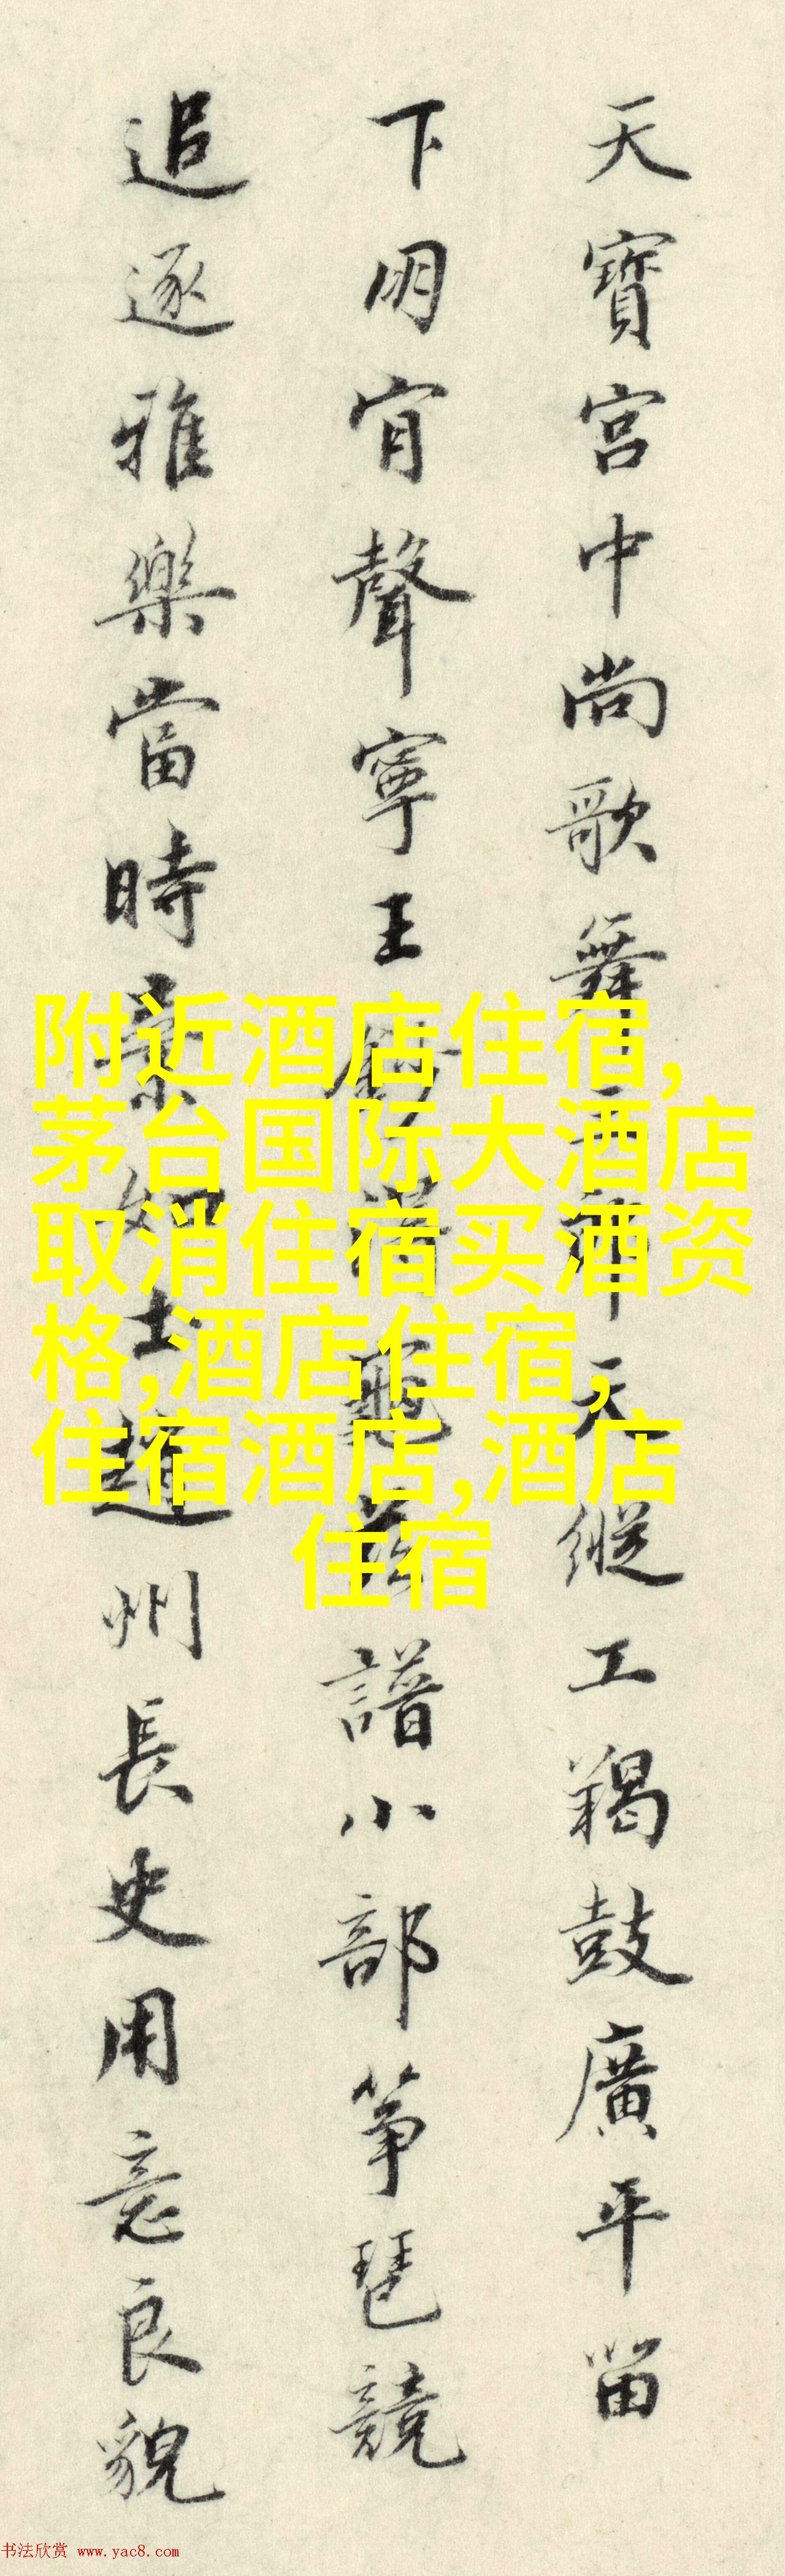 天寶宮中尚歌舞
天縱工羯鼓廣平留
下開宵聲寧王
龜茲譜小部筝琶競
追逐雅樂當時
士趙州長史用意良貌
附近酒店住宿,
茅台国际大酒店
取消住宿买酒资
格,酒店住宿,
住宿酒店,酒店
住宿
书法欣赏 www.yac8.com